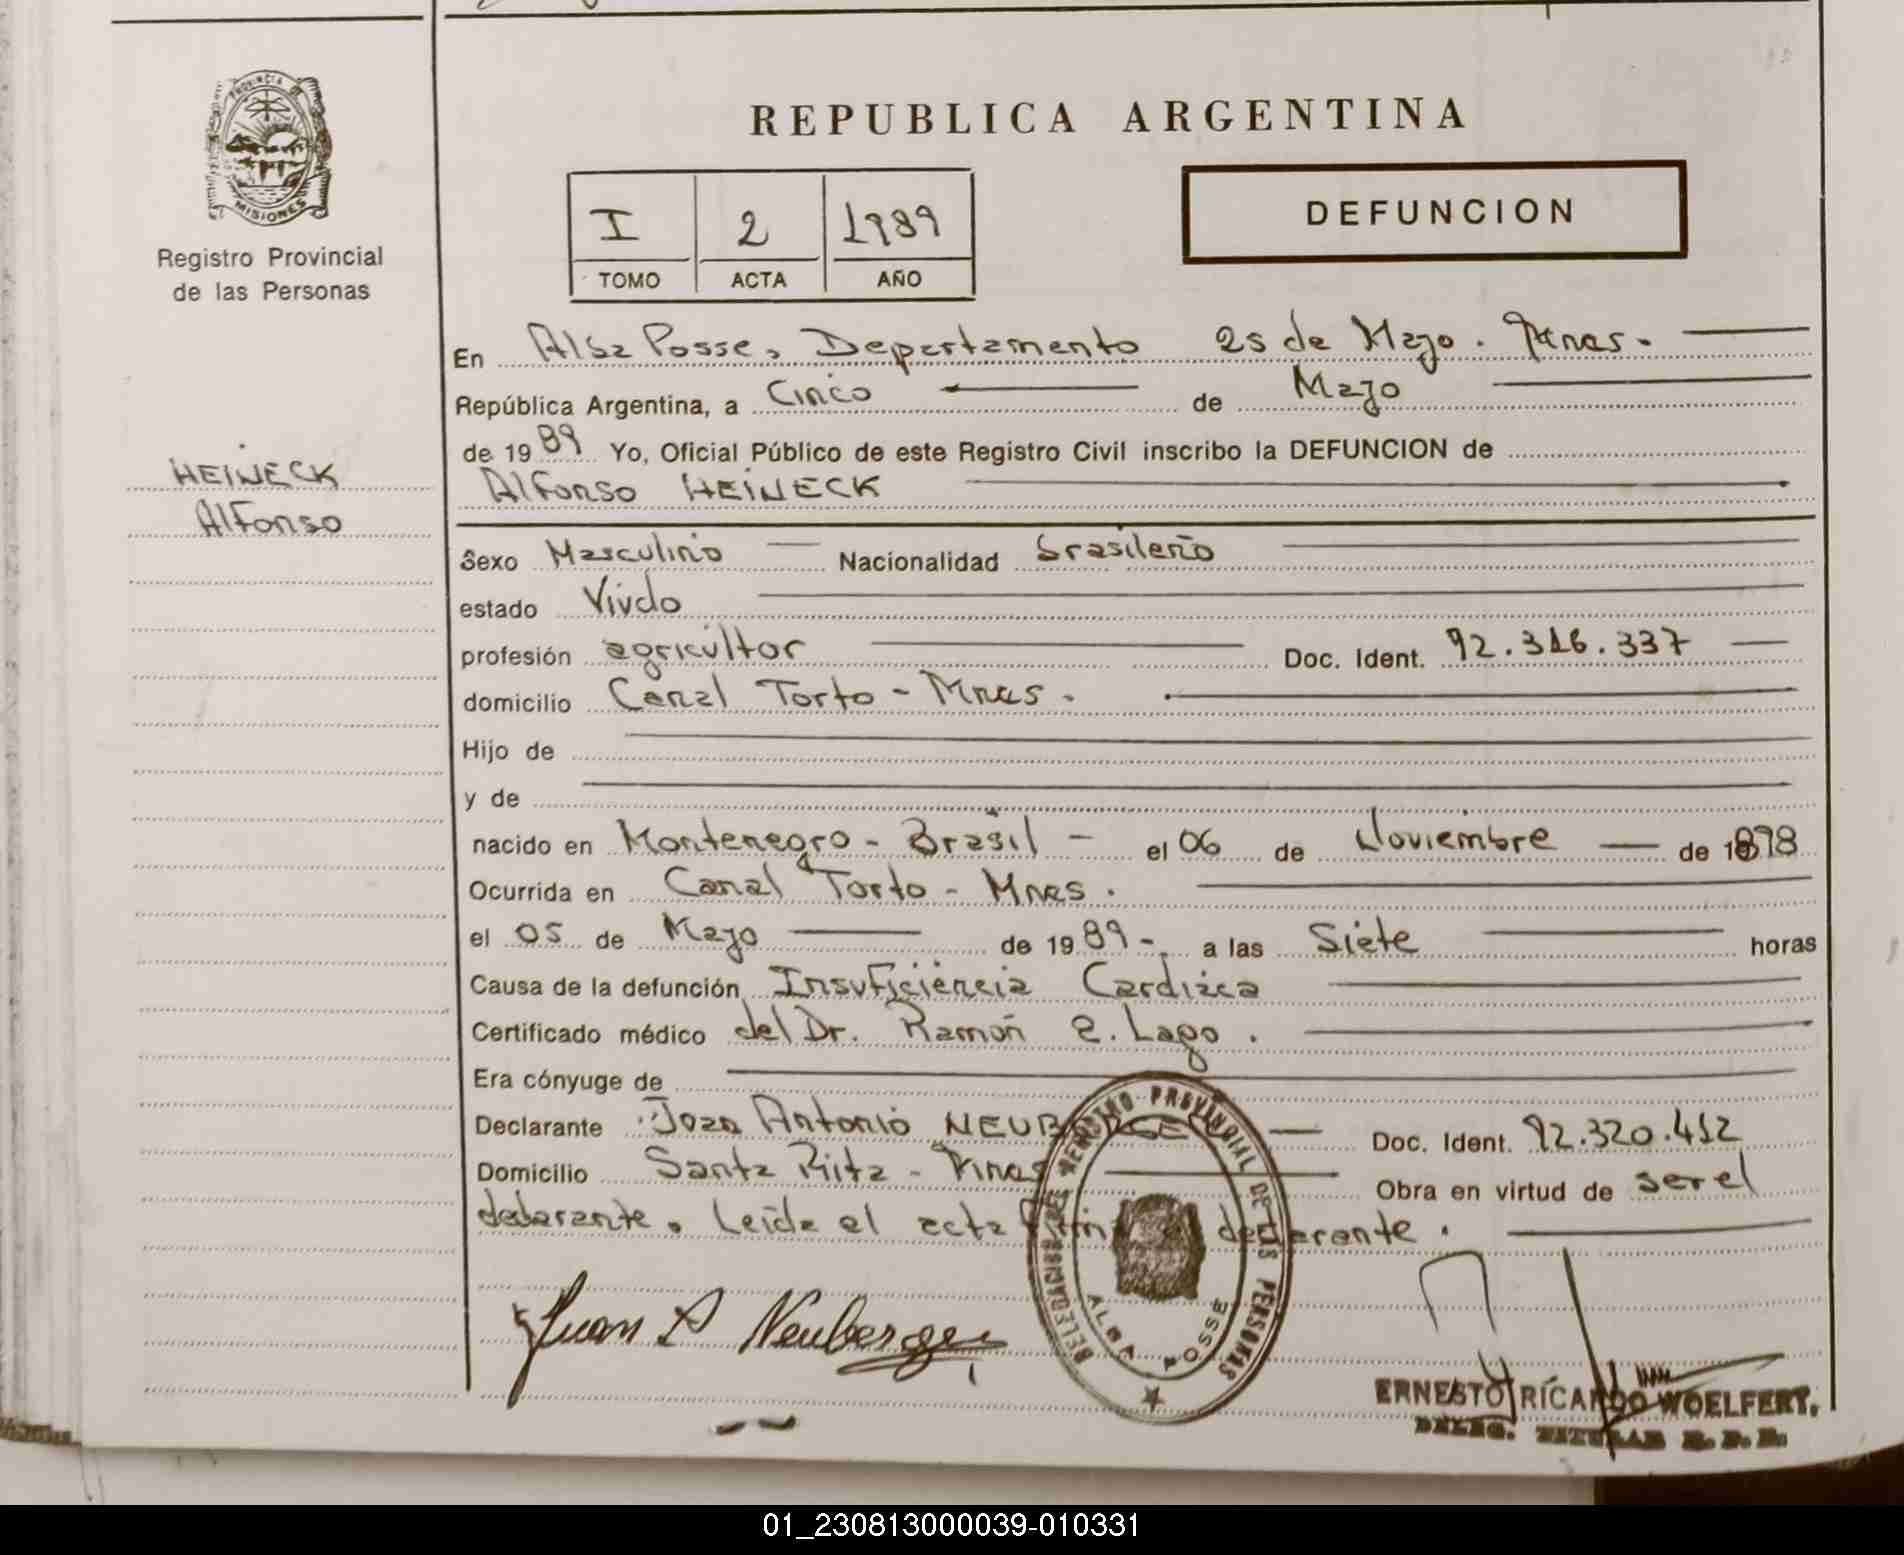 PROVINCIA DE
MISIONES
Registro Provincial
de las Personas
HEINECK
Alfonso
REPUBLICA ARGENTINA
I 2 1989
TOMO ACTA AÑO
DEFUNCION
En Alba Posse, Departamento 25 de Mayo. Mnes.
República Argentina, a Cinco de Mayo
de 1989 Yo, Oficial Público de este Registro Civil inscribo la DEFUNCION de
Alfonso HEINECK
Sexo Masculino Nacionalidad brasileño
estado Viudo
profesión agricultor Doc. Ident. 92.316.337
domicilio Canal Torto - Mnes.
Hijo de
y de
nacido en Montenegro - Brasil - el 06 de Noviembre de 1898
Ocurrida en Canal Torto - Mnes.
el 05 de Mayo de 1989 - a las Siete horas
Causa de la defunción Insuficiencia Cardiaca
Certificado médico del Dr. Ramón E. Lago.
Era cónyuge de
Declarante Joao Antonio NEUBERGER Doc. Ident. 92.320.412
Domicilio Santa Rita - Mnes Obra en virtud de ser el
declarante. Leída el acta firma el declarante.
Juan A Neuberger
DELEGACION DEL REGISTRO PROVINCIAL DE LAS PERSONAS
ALBA POSSE
ERNESTO RICARDO WOELFERT.
DELEG. TITULAR R. P. P.
01_230813000039-010331